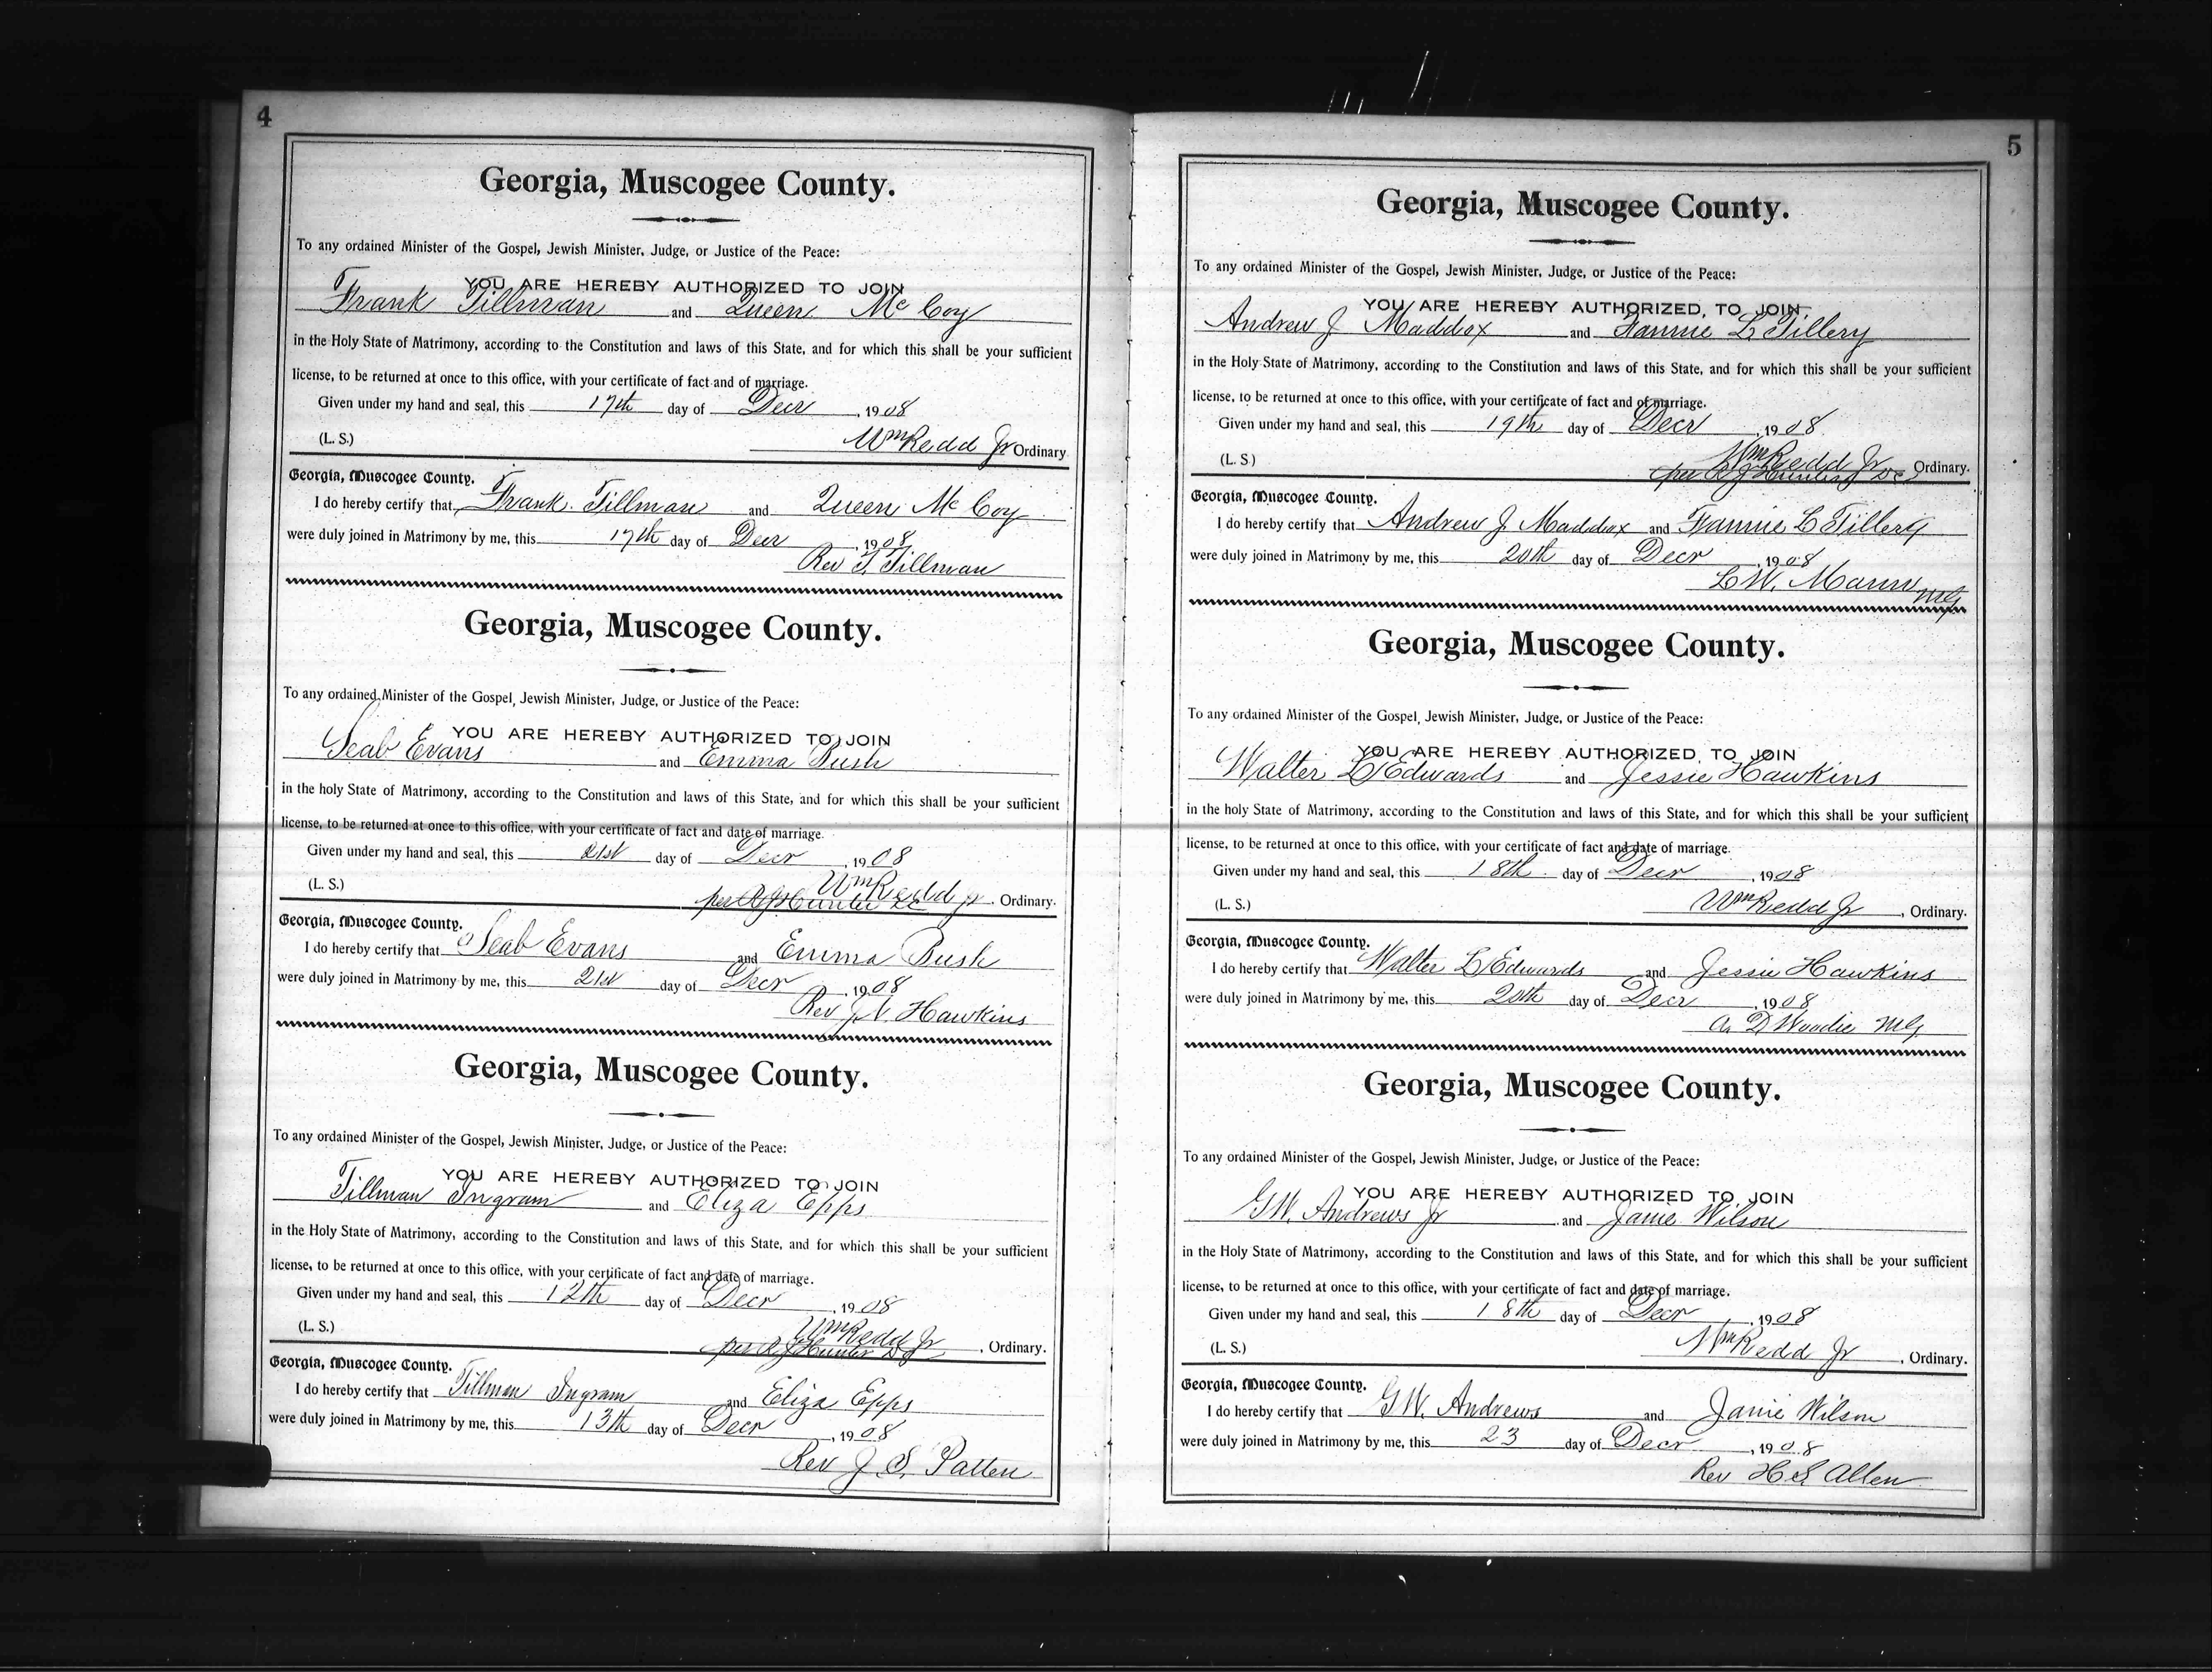 4
Georgia, Muscogee County.
To any ordained Minister of the Gospel, Jewish Minister, Judge, or Justice of the Peace:
YOU ARE HEREBY AUTHORIZED TO JOIN
Frank Tillman and Queen McCoy
in the Holy State of Matrimony, according to the Constitution and laws of this State, and for which this shall be your sufficient
license, to be returned at once to this office, with your certificate of fact and of marriage.
Given under my hand and seal, this 17th day of Decr, 1908
(L. S.) Wm Redd Jr Ordinary
Georgia, Muscogee County.
I do hereby certify that Frank Tillman and Queen McCoy
were duly joined in Matrimony by me, this 17th day of Decr, 1908
Rev T. Tillman
Georgia, Muscogee County.
To any ordained Minister of the Gospel, Jewish Minister, Judge, or Justice of the Peace:
YOU ARE HEREBY AUTHORIZED TO JOIN
Seab Evans and Emma Bush
in the holy State of Matrimony, according to the Constitution and laws of this State, and for which this shall be your sufficient
license, to be returned at once to this office, with your certificate of fact and date of marriage.
Given under my hand and seal, this 21st day of Decr, 1908
(L. S.) Wm Redd Jr. Ordinary.
per R J Hunter
Georgia, Muscogee County.
I do hereby certify that Seab Evans and Emma Bush
were duly joined in Matrimony by me, this 21st day of Decr, 1908
Rev J. V. Hawkins
Georgia, Muscogee County.
To any ordained Minister of the Gospel, Jewish Minister, Judge, or Justice of the Peace:
YOU ARE HEREBY AUTHORIZED TO JOIN
Tillman Ingram and Eliza Epps
in the Holy State of Matrimony, according to the Constitution and laws of this State, and for which this shall be your sufficient
license, to be returned at once to this office, with your certificate of fact and date of marriage.
Given under my hand and seal, this 12th day of Decr, 1908
(L. S.) Wm Redd Jr, Ordinary.
per R J Hunter
Georgia, Muscogee County.
I do hereby certify that Tillman Ingram and Eliza Epps
were duly joined in Matrimony by me, this 13th day of Decr, 1908
Rev J. S. Patten
5
Georgia, Muscogee County.
To any ordained Minister of the Gospel, Jewish Minister, Judge, or Justice of the Peace:
YOU ARE HEREBY AUTHORIZED, TO JOIN
Andrew J Maddox and Fannie L Tillery
in the Holy State of Matrimony, according to the Constitution and laws of this State, and for which this shall be your sufficient
license, to be returned at once to this office, with your certificate of fact and of marriage.
Given under my hand and seal, this 19th day of Decr, 1908
(L. S) Wm Redd Jr Ordinary.
per R J Hunter DC
Georgia, Muscogee County.
I do hereby certify that Andrew J Maddox and Fannie L Tillery
were duly joined in Matrimony by me, this 20th day of Decr, 1908
L W. Mann MG
Georgia, Muscogee County.
To any ordained Minister of the Gospel, Jewish Minister, Judge, or Justice of the Peace:
YOU ARE HEREBY AUTHORIZED, TO JOIN
Walter L Edwards and Jessie Hawkins
in the holy State of Matrimony, according to the Constitution and laws of this State, and for which this shall be your sufficient
license, to be returned at once to this office, with your certificate of fact and date of marriage.
Given under my hand and seal, this 18th day of Decr, 1908
(L. S.) Wm Redd Jr, Ordinary.
Georgia, Muscogee County.
I do hereby certify that Walter L Edwards and Jessie Hawkins
were duly joined in Matrimony by me, this 20th day of Decr, 1908
A. D Woodie MG
Georgia, Muscogee County.
To any ordained Minister of the Gospel, Jewish Minister, Judge, or Justice of the Peace:
YOU ARE HEREBY AUTHORIZED TO JOIN
G W. Andrews Jr and Janie Wilson
in the Holy State of Matrimony, according to the Constitution and laws of this State, and for which this shall be your sufficient
license, to be returned at once to this office, with your certificate of fact and date of marriage.
Given under my hand and seal, this 18th day of Decr, 1908
(L. S.) Wm Redd Jr, Ordinary.
Georgia, Muscogee County.
I do hereby certify that G W. Andrews and Janie Wilson
were duly joined in Matrimony by me, this 23 day of Decr, 1908
Rev H S Allen